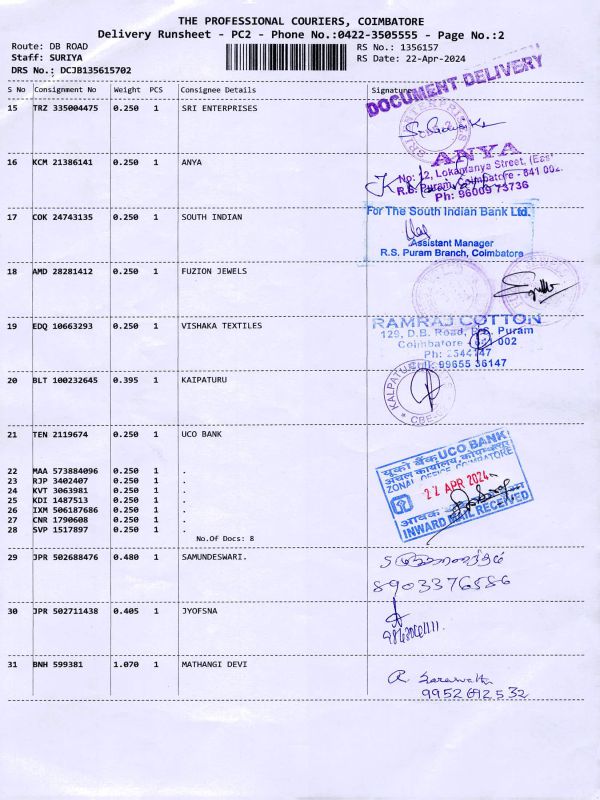 THE PROFESSIONAL COURIERS, COIMBATORE
Delivery Runsheet - PC2 - Phone No.:0422-3505555 - Page No.:2
Route: DB ROAD
Staff: SURIYA
DRS No.: DCJB135615702
RS No.: 1356157
RS Date: 22-Apr-2024
S No Consignment No Weight PCS Consignee Details Signature
DOCUMENT DELIVERY
15 TRZ 335004475 0.250 1 SRI ENTERPRISES
SRI ENTERPRISES
16 KCM 21386141 0.250 1 ANYA
ANYA
No: 12, Lokamanya Street, (East)
R.S. Puram, Coimbatore - 641 002.
Ph: 96009 73736
17 COK 24743135 0.250 1 SOUTH INDIAN
For The South Indian Bank Ltd.
Assistant Manager
R.S. Puram Branch, Coimbatore
18 AMD 28281412 0.250 1 FUZION JEWELS
19 EDQ 10663293 0.250 1 VISHAKA TEXTILES
RAMRAJ COTTON
129, D.B. Road, R.S. Puram
Coimbatore 002
Ph: 2544747
99655 36147
20 BLT 100232645 0.395 1 KAIPATURU
21 TEN 2119674 0.250 1 UCO BANK
यूको बैंक UCO BANK
अंचल कार्यालय, कोयम्बत्तूर
ZONAL OFFICE COIMBATORE
22 APR 2024
आवक
INWARD MAIL RECEIVED
22 MAA 573884096 0.250 1 .
23 RJP 3402407 0.250 1 .
24 KVT 3063981 0.250 1 .
25 KDI 1487513 0.250 1 .
26 IXM 506187686 0.250 1 .
27 CNR 1790608 0.250 1 .
28 SVP 1517897 0.250 1 .
No.Of Docs: 8
29 JPR 502688476 0.480 1 SAMUNDESWARI.
8903376586
30 JPR 502711438 0.405 1 JYOFSNA
31 BNH 599381 1.070 1 MATHANGI DEVI
R. Saraswathi
9952692532